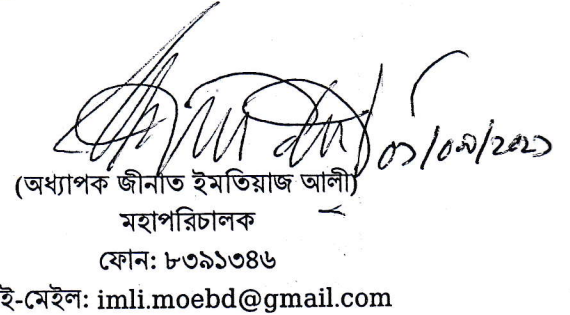 ০১/০৯/২০২১
(অধ্যাপক জীনাত ইমতিয়াজ আলী)
মহাপরিচালক
ফোন: ৮৩৯১৩৪৬
ই-মেইল: imli.moebd@gmail.com